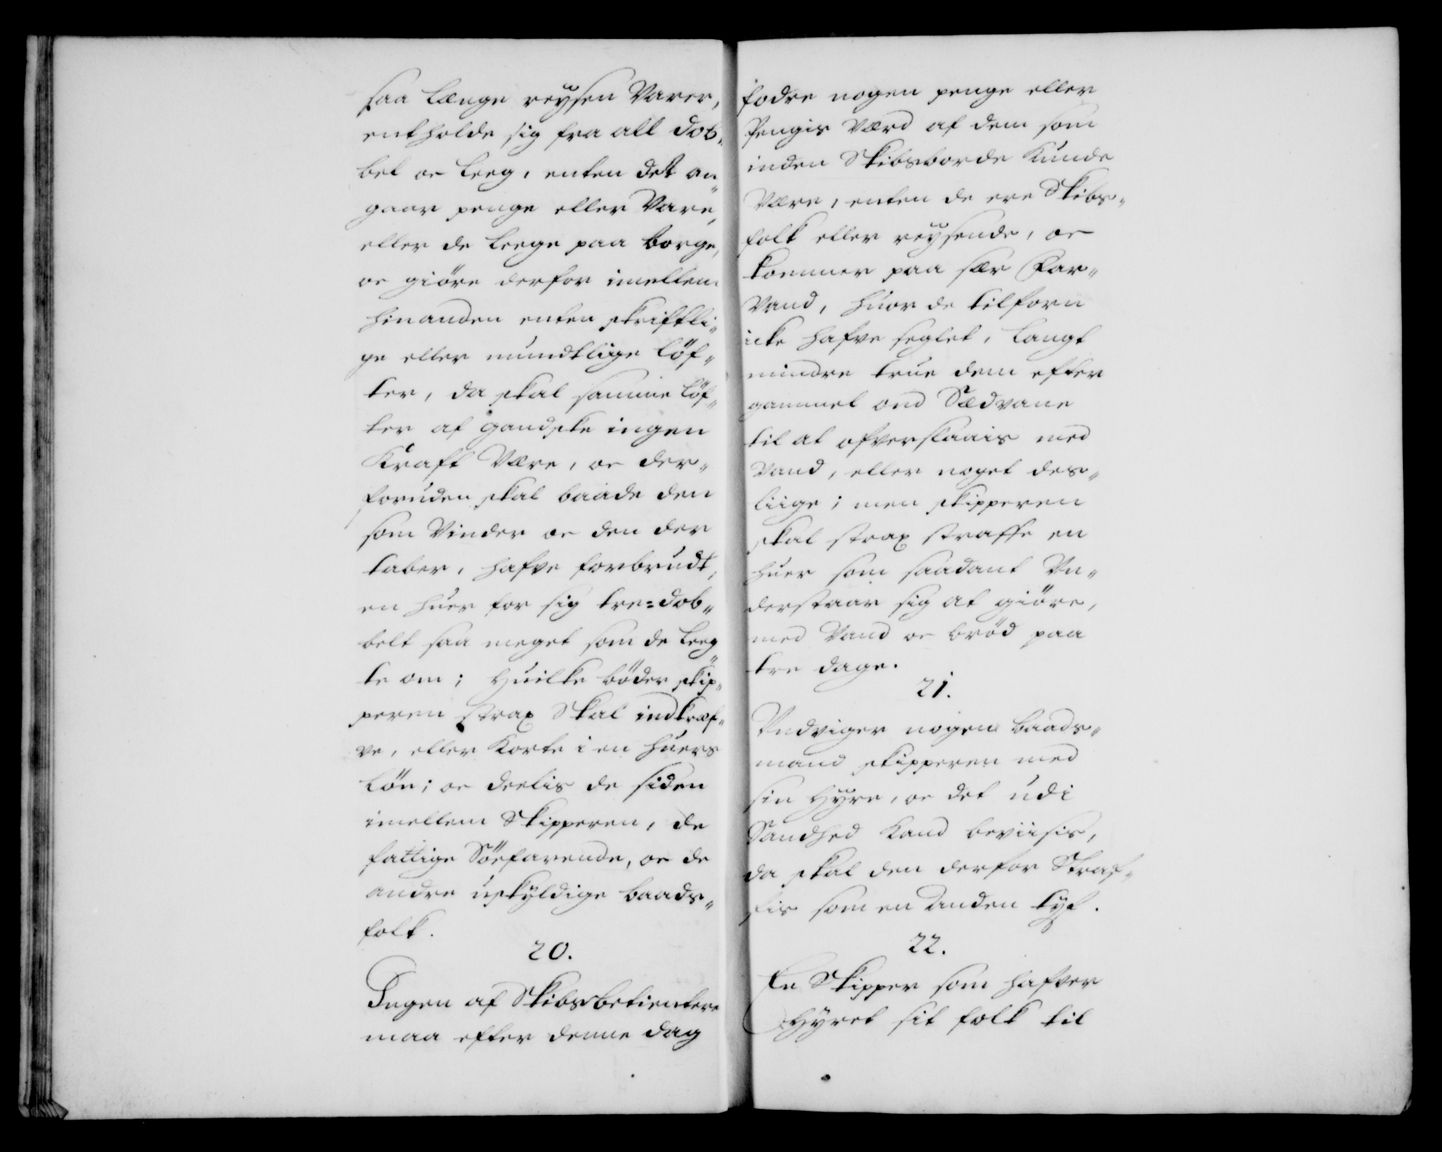 saa længe reysen Varer,
entholde sig fra alt dob-
bel oc leeg, enten det an
gaar penge eller Vare,
eller de leege paa borge,
oc giöre derfor imellem
hinanden enten skriftli-
ge eller mundtlige löf-
ter, da skal samme löf-
ter af gandske ingen
Kraft Være, oc der-
foruden skal baade den
som Vinder oc den der
taber, hafve forbrudt,
en huer for sig tre=dob-
belt saa meget som de leeg
te om; Huilke böder skip-
peren strax Skal indkræf-
ve, eller Korte i en huers
lön; oc deelis de siden
imellem Skipperen, de
fattige Söefarende, oc de
andre uskyldige baads-
folk.
20.
Ingen af Skibsbetientere
maa efter denne dag
fodre nogen penge eller
Pengis Værd af dem som
inden Skibsborde Kunde
Være, enten de ere Skibs-
folk eller reysende, oc
kommer paa sær Far-
Vand, huor de tilforn
icke hafve seglet, langt
mindre true dem efter
gammel ond Sædvane
til at ofverslaais med
Vand, eller noget des-
liige; men skipperen
skal strax straffe en
huer som saadant Un-
derstaar sig at giöre,
med Vand oc bröd paa
tre dage.
21.
Undviger nogen baads-
mand skipperen med
sin Hyre, oc det udi
Sandhed Kand beviisis,
da skal den derfor Straf-
fis som en anden tyf.
22.
En Skipper som hafver
Hyret sit folk til